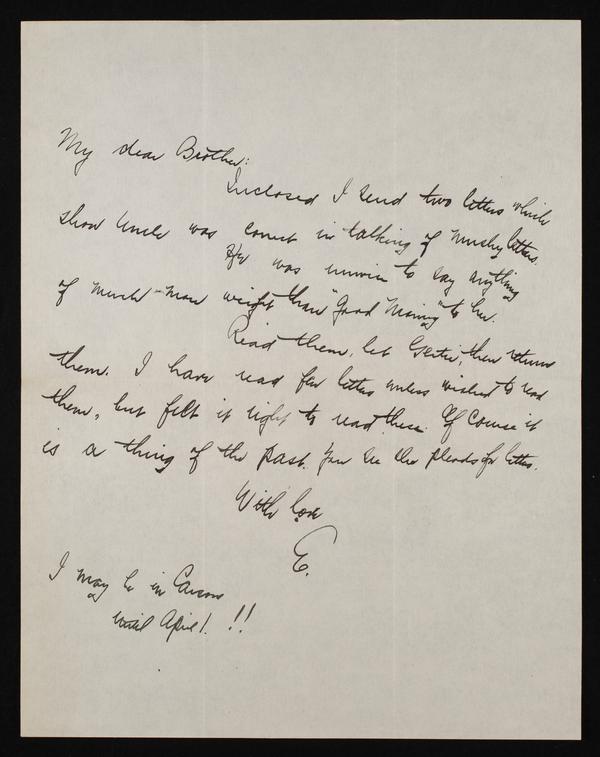 My dear Brother:
Inclosed I send two letters which
show Uncle was correct in talking of mushy letters.
He was unwise to say anything
of much more weight than "Good Morning" to her.
Read them, let Gertie, then return
them. I have read few letters unless wished to read
them, but felt it right to read these. Of course it
is a thing of the past. You see she pleads for letters.
With love
E.
I may be in Carson
until April. !!